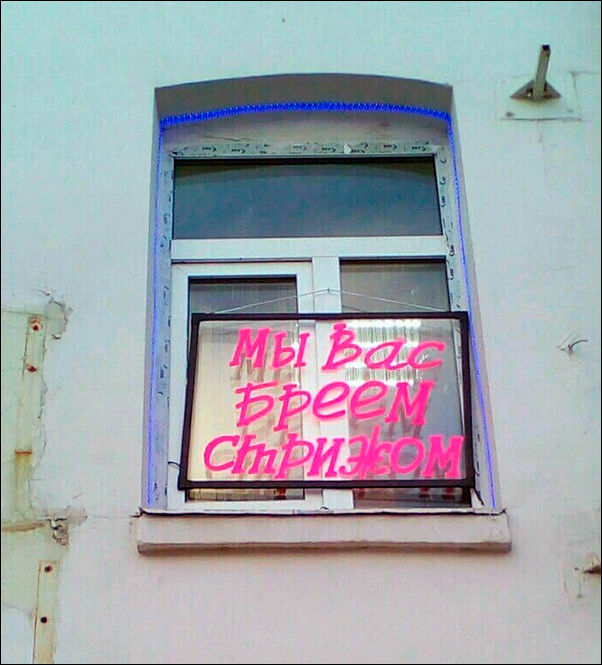 Мы Вас
Бреем
Стрижом